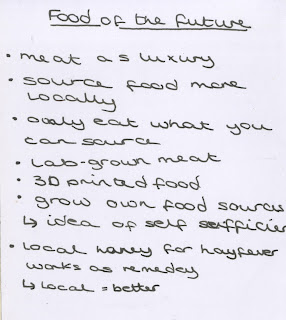 Food of the future
• meat as luxury
• source food more
locally
• only eat what you
can source
• Lab-grown meat
• 3D printed food
• grow own food sources
↳ idea of self sufficien
• local honey for hayfever
works as remeday
↳ local = better